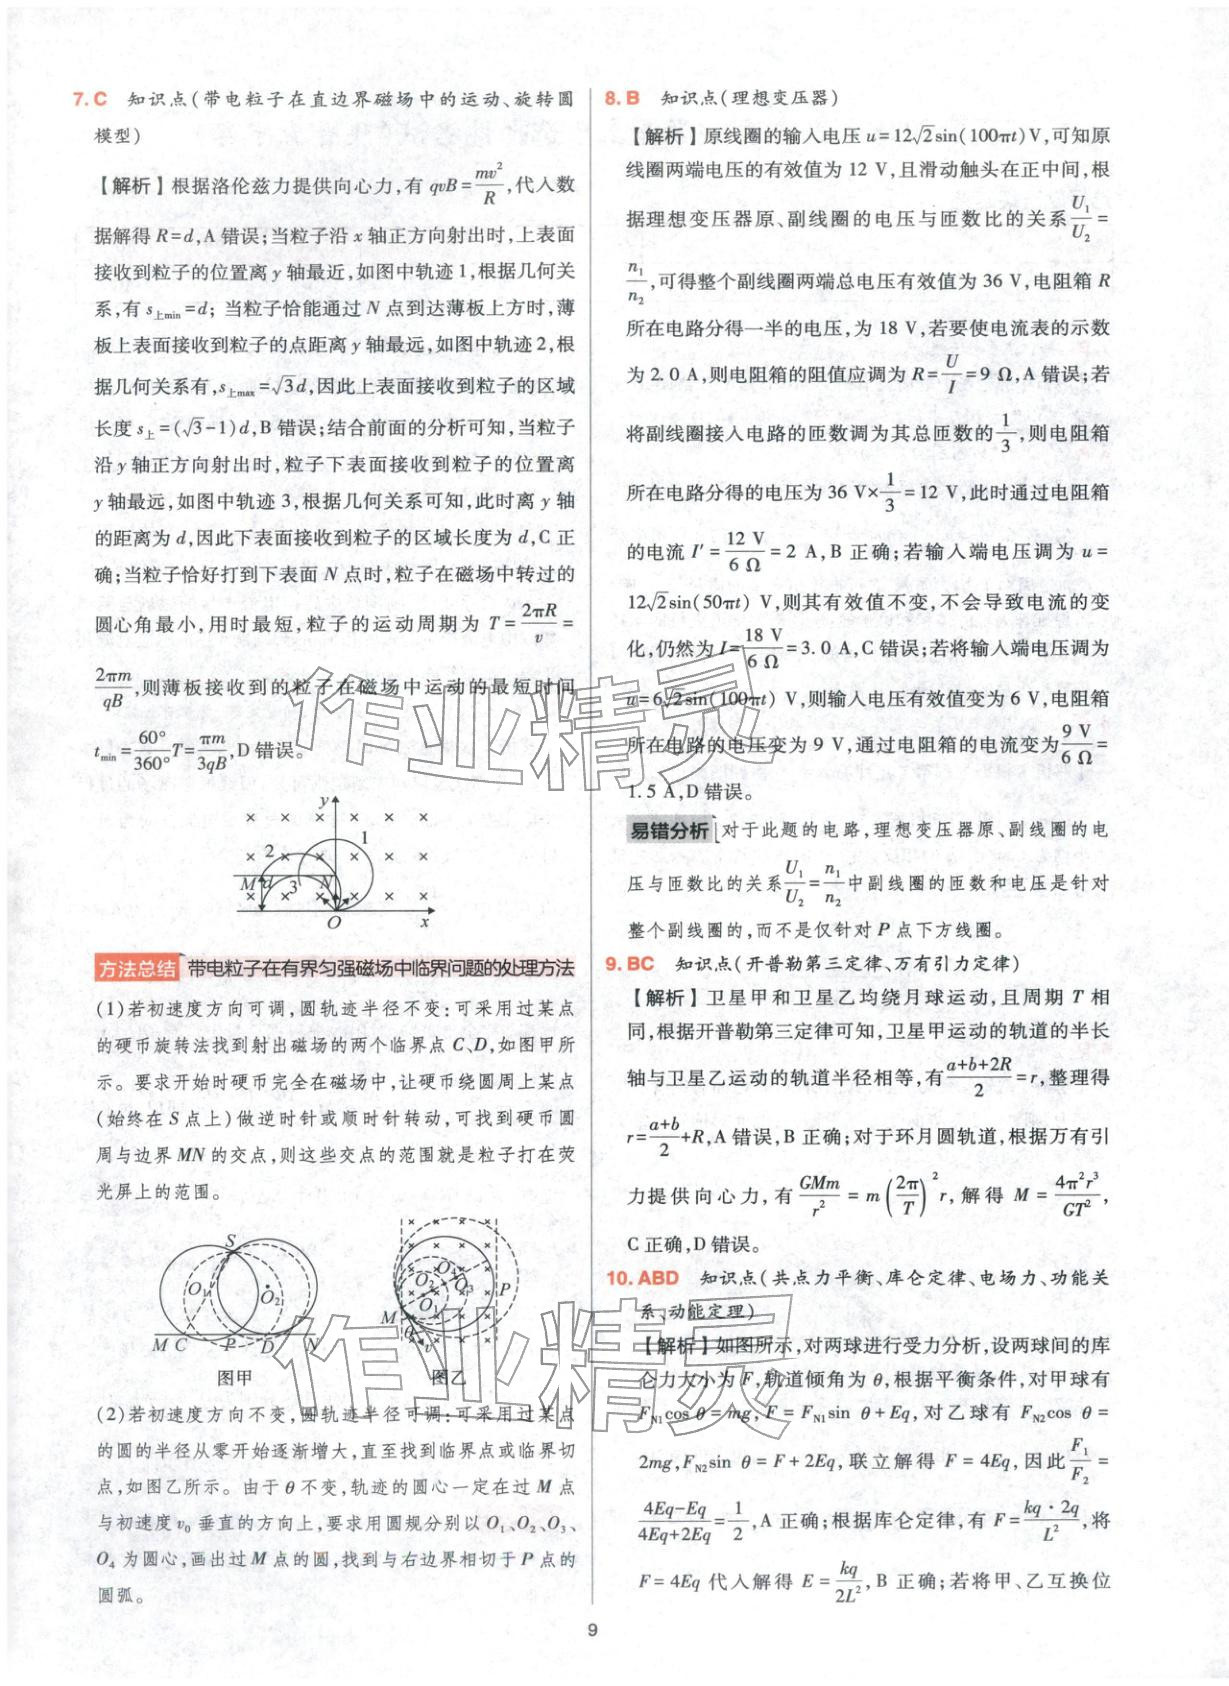 7. C 知识点(带电粒子在直边界磁场中的运动、旋转圆
模型)
【解析】根据洛伦兹力提供向心力,有 qvB=mv²/R,代入数
据解得 R=d,A 错误;当粒子沿 x 轴正方向射出时,上表面
接收到粒子的位置离 y 轴最近,如图中轨迹 1,根据几何关
系,有 s上min=d; 当粒子恰能通过 N 点到达薄板上方时,薄
板上表面接收到粒子的点距离 y 轴最远,如图中轨迹 2,根
据几何关系有,s上max=√3d,因此上表面接收到粒子的区域
长度 s上=(√3-1)d,B 错误;结合前面的分析可知,当粒子
沿 y 轴正方向射出时,粒子下表面接收到粒子的位置离
y 轴最远,如图中轨迹 3,根据几何关系可知,此时离 y 轴
的距离为 d,因此下表面接收到粒子的区域长度为 d,C 正
确;当粒子恰好打到下表面 N 点时,粒子在磁场中转过的
圆心角最小,用时最短,粒子的运动周期为 T=2πR/v=
2πm/qB,则薄板接收到的粒子在磁场中运动的最短时间
tmin=60°/360°T=πm/3qB,D 错误。
y
1
2
M d 3 N
O x
方法总结 带电粒子在有界匀强磁场中临界问题的处理方法
(1)若初速度方向可调,圆轨迹半径不变:可采用过某点
的硬币旋转法找到射出磁场的两个临界点 C、D,如图甲所
示。要求开始时硬币完全在磁场中,让硬币绕圆周上某点
(始终在 S 点上)做逆时针或顺时针转动,可找到硬币圆
周与边界 MN 的交点,则这些交点的范围就是粒子打在荧
光屏上的范围。
S
O₁ O₂
M C P D N
图甲
O₄
O₂ O₃ P
O₁
M
θ v
图乙
(2)若初速度方向不变,圆轨迹半径可调:可采用过某点
的圆的半径从零开始逐渐增大,直至找到临界点或临界切
点,如图乙所示。由于 θ 不变,轨迹的圆心一定在过 M 点
与初速度 v₀ 垂直的方向上,要求用圆规分别以 O₁、O₂、O₃、
O₄ 为圆心,画出过 M 点的圆,找到与右边界相切于 P 点的
圆弧。
8. B 知识点(理想变压器)
【解析】原线圈的输入电压 u=12√2sin(100πt)V,可知原
线圈两端电压的有效值为 12 V,且滑动触头在正中间,根
据理想变压器原、副线圈的电压与匝数比的关系U₁/U₂=
n₁/n₂,可得整个副线圈两端总电压有效值为 36 V,电阻箱 R
所在电路分得一半的电压,为 18 V,若要使电流表的示数
为 2.0 A,则电阻箱的阻值应调为 R=U/I=9 Ω,A 错误;若
将副线圈接入电路的匝数调为其总匝数的1/3,则电阻箱
所在电路分得的电压为 36 V×1/3=12 V,此时通过电阻箱
的电流 I′=12 V/6 Ω=2 A,B 正确;若输入端电压调为 u=
12√2sin(50πt) V,则其有效值不变,不会导致电流的变
化,仍然为 I=18 V/6 Ω=3.0 A,C 错误;若将输入端电压调为
u=6√2sin(100πt) V,则输入电压有效值变为 6 V,电阻箱
所在电路的电压变为 9 V,通过电阻箱的电流变为9 V/6 Ω=
1.5 A,D 错误。
易错分析 对于此题的电路,理想变压器原、副线圈的电
压与匝数比的关系U₁/U₂=n₁/n₂中副线圈的匝数和电压是针对
整个副线圈的,而不是仅针对 P 点下方线圈。
9. BC 知识点(开普勒第三定律、万有引力定律)
【解析】卫星甲和卫星乙均绕月球运动,且周期 T 相
同,根据开普勒第三定律可知,卫星甲运动的轨道的半长
轴与卫星乙运动的轨道半径相等,有(a+b+2R)/2=r,整理得
r=(a+b)/2+R,A 错误,B 正确;对于环月圆轨道,根据万有引
力提供向心力,有GMm/r²=m(2π/T)²r,解得 M=4π²r³/GT²,
C 正确,D 错误。
10. ABD 知识点(共点力平衡、库仑定律、电场力、功能关
系、动能定理)
【解析】如图所示,对两球进行受力分析,设两球间的库
仑力大小为 F,轨道倾角为 θ,根据平衡条件,对甲球有
FN1cos θ=mg,F=FN1sin θ+Eq,对乙球有 FN2cos θ=
2mg,FN2sin θ=F+2Eq,联立解得 F=4Eq,因此F₁/F₂=
(4Eq-Eq)/(4Eq+2Eq)=1/2,A 正确;根据库仑定律,有 F=kq·2q/L²,将
F=4Eq 代入解得 E=kq/2L²,B 正确;若将甲、乙互换位
9
作业精灵
作业精灵